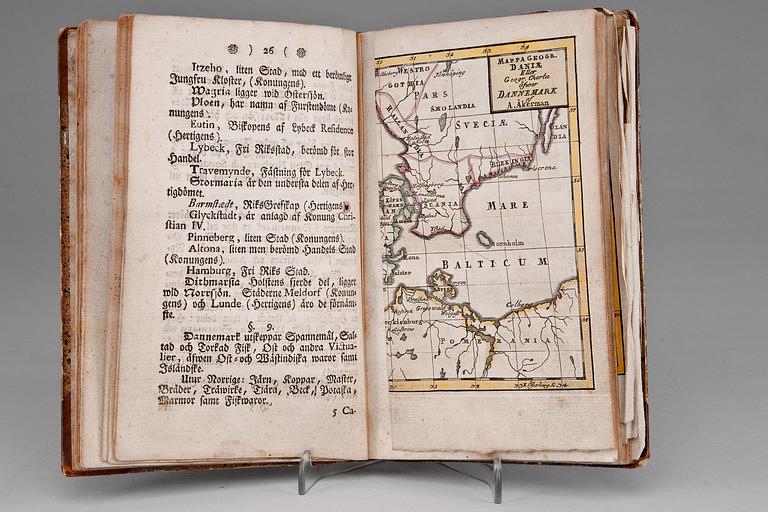 ) 26 (
Itzeho, liten Stad, med ett berömligt
Jungfru Kloster, (Konungens).
Wagria ligger wid Östersjön.
Ploen, har namn af Furstendöme (Ko-
nungens).
Eutin, Biskopens af Lybeck Residence
(Hertigens).
Lybeck, Fri Riksstad, berömd för stor
Handel.
Travemynde, Fästning för Lybeck.
Stormaria är den understa delen af Her-
tigdömet.
Barmstedt, RiksGrefskap (Hertigens).
Glyckstadt, är anlagd af Konung Chri-
stian IV.
Pinneberg, liten Stad (Konungens).
Altona, liten men berömd Handels Stad
(Konungens).
Hamburg, Fri Riks Stad.
Dithmarsia, Holstens fjerde del, ligger
wid Norrsjön. Städerne Meldorf (Konun-
gens) och Lunde (Hertigens) äro de förnäm-
ste.
§. 9.
Dannemark utskeppar Spannemål, Sal-
tad och Torkad Fisk, Ost och andra Victu-
lier, äfwen Ost- och Wästindiska waror samt
Isländske.
Utur Norrige: Järn, Koppar, Master,
Bräder, Träwirke, Tjära, Beck, Potaska,
Marmor samt Fiskwaror.
5 Ca-
MAPPA GEOGR.
DANIÆ
Eller
Geogr. Charta
öfwer
DANNEMARK
af
A. Åkerman
WESTRO
GOTHIA
PARS
SMOLANDIA
SVECIÆ
HALLANDIA
BLEKINGIA
SCANIA
MARE
Ystad
Bornholm
BALTICUM
Colberg
POMERANIA